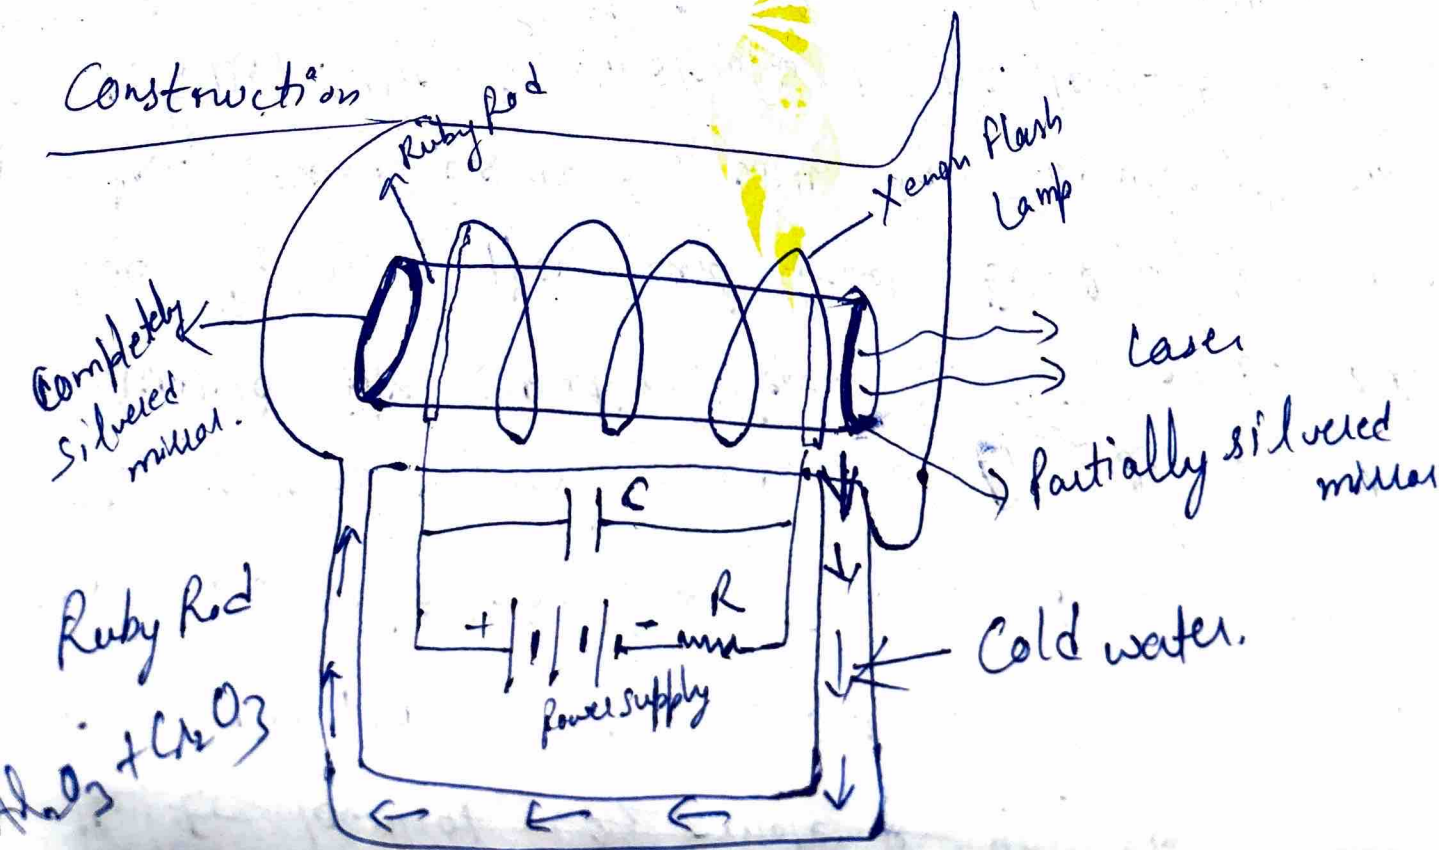 Construction
Ruby Rod
Xenon flash
lamp
Completely
silvered
mirror.
Laser
Partially silvered
mirror
C
R
+
-
Power supply
Cold water.
Ruby Rod
Al2O3 + Cr2O3